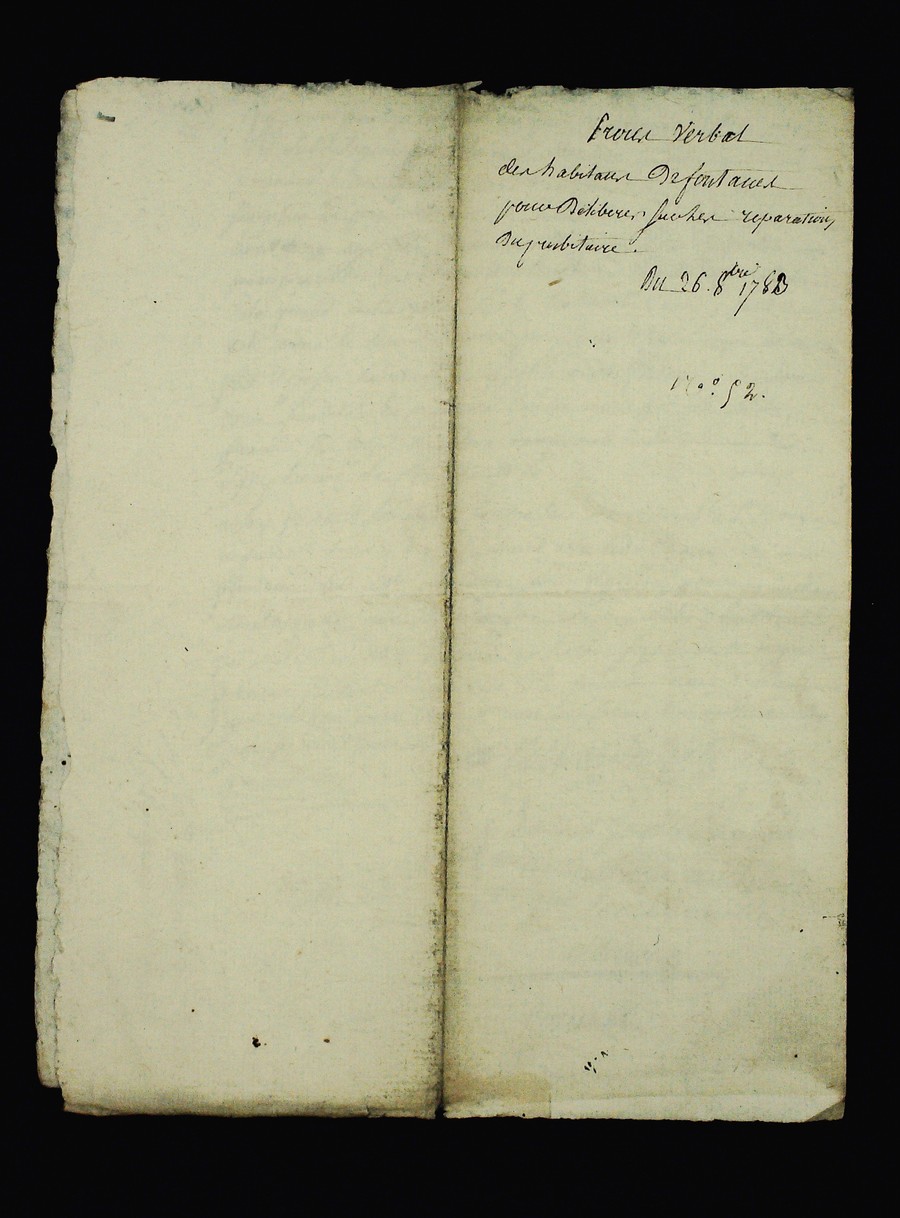 Proces Verbal
des habitans De fontanes
pour Deliberer sur les reparations
Du presbitaire.
Du 26. 8bre 1783
N.o 52.